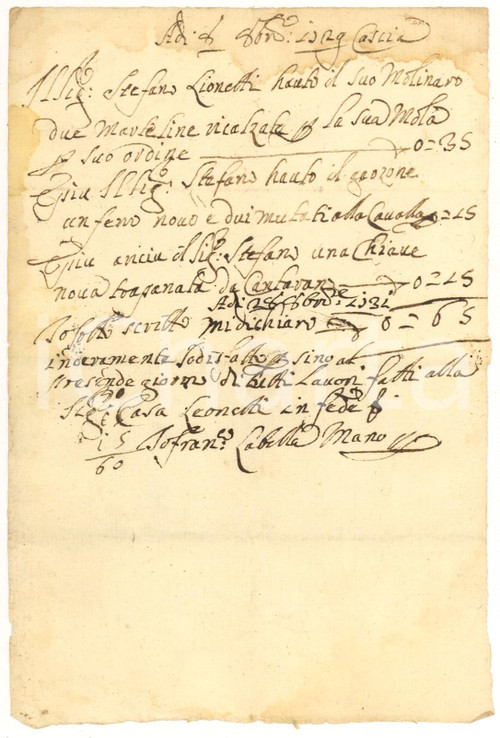 Adi 8 8bre: 1729 Cascia
Il Sig: Stefano Lionetti hauto il suo Molinaro
due Marteline ricalzate p la sua Mola
p suo ordine 0=35
E piu Il Sig: Stefano hauto il garzone
un fero novo e dui mutati alla Cavalla 0=15
E piu il Sig: Stefano una Chiave
nova da 0=15
Adi 28 8bre 1731
Io sotto scritto mi dichiaro 0=65
interamente sodisfatto p sino al
presende giorno di tutti lavori fatti alla
Sig: Casa Leonetti in fede
15 Io Franco: Labella Mano
60